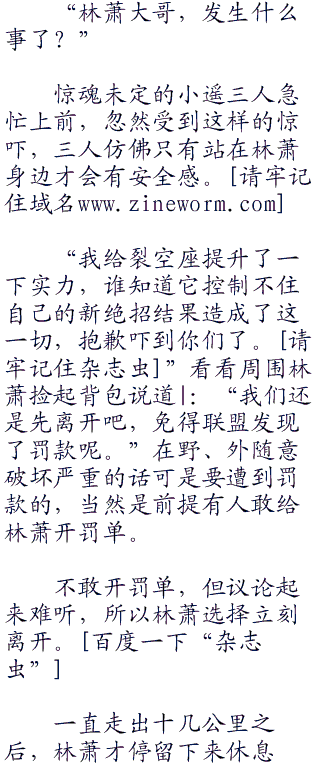 “林萧大哥，发生什么
事了？”
惊魂未定的小遥三人急
忙上前，忽然受到这样的惊
吓，三人仿佛只有站在林萧
身边才会有安全感。[请牢记
住域名www.zineworm.com]
“我给裂空座提升了一
下实力，谁知道它控制不住
自己的新绝招结果造成了这
一切，抱歉吓到你们了。[请
牢记住杂志虫]”看看周围林
萧捡起背包说道|：“我们还
是先离开吧，免得联盟发现
了罚款呢。”在野、外随意
破坏严重的话可是要遭到罚
款的，当然是前提有人敢给
林萧开罚单。
不敢开罚单，但议论起
来难听，所以林萧选择立刻
离开。[百度一下“杂志
虫”]
一直走出十几公里之
后，林萧才停留下来休息